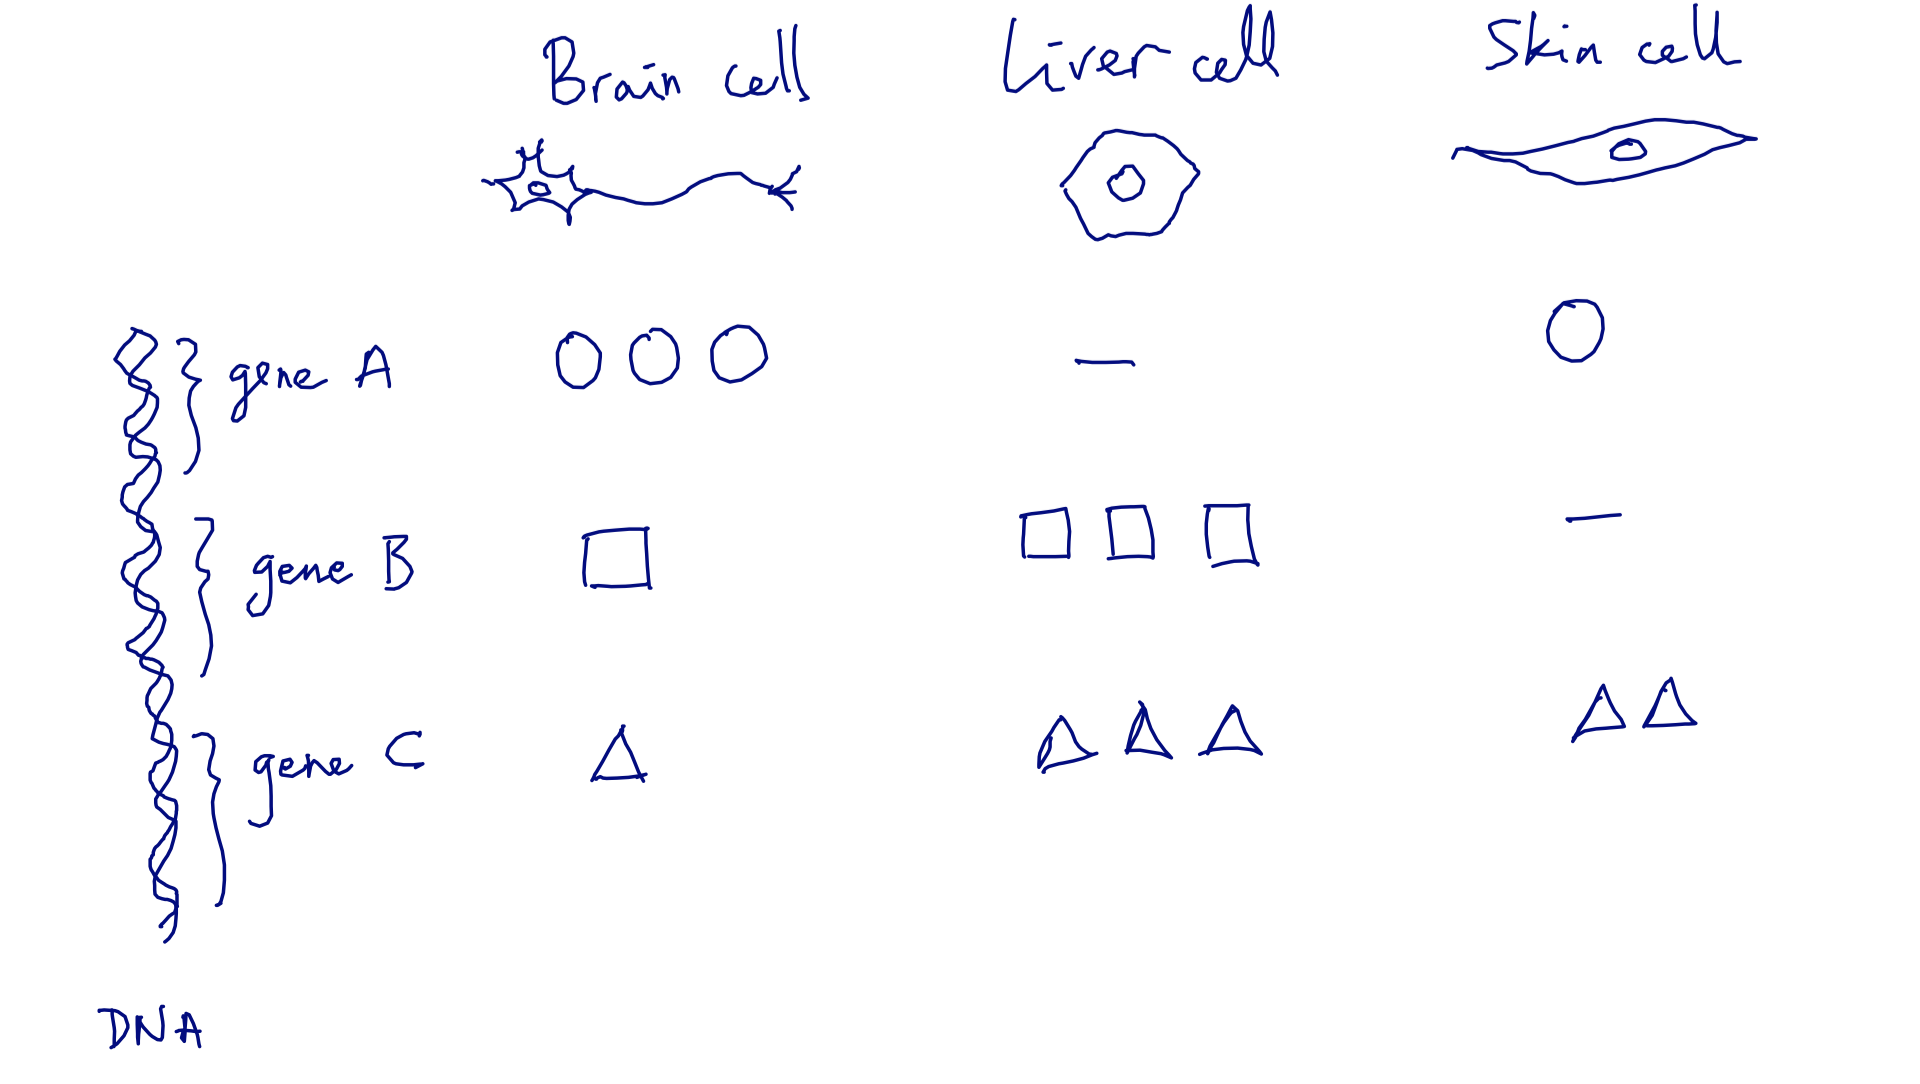 Brain cell
Liver cell
Skin cell
gene A
gene B
gene C
DNA